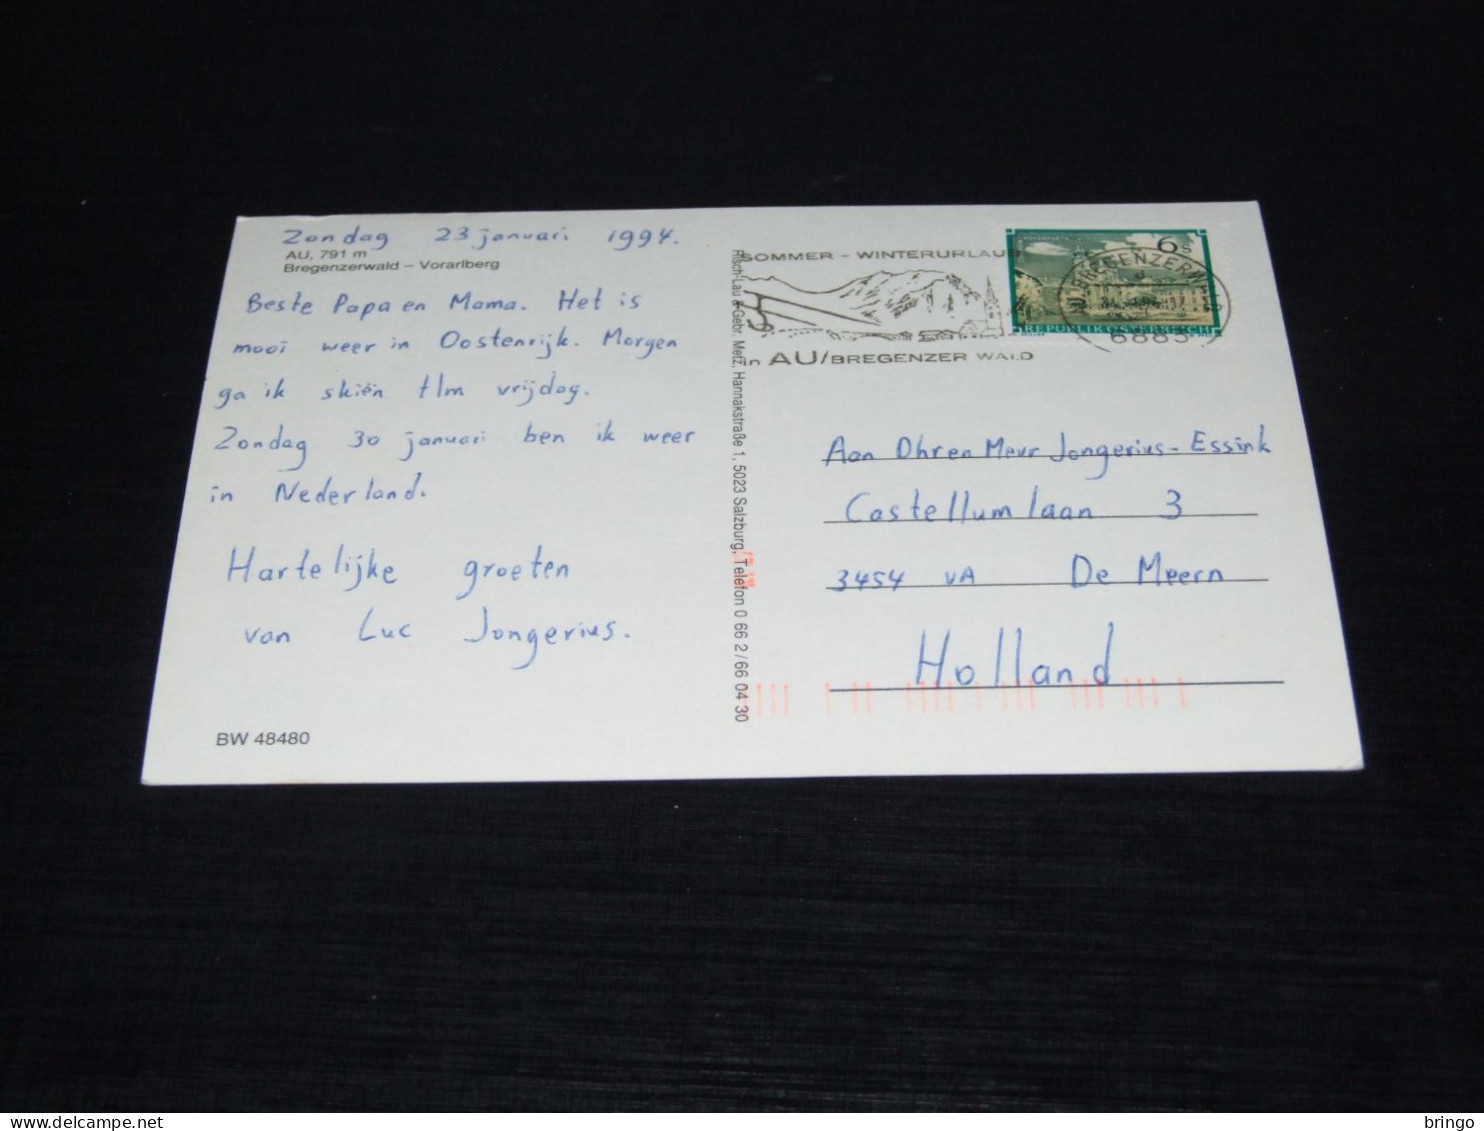 Zondag 23 januari 1994.
AU, 791 m
Bregenzerwald – Vorarlberg
Beste Papa en Mama. Het is
mooi weer in Oostenrijk. Morgen
ga ik skiën t/m vrijdag.
Zondag 30 januari ben ik weer
in Nederland.
Hartelijke groeten
van Luc Jongerius.
BW 48480
Risch-Lau & Gebr. Metz, Hannakstraße 1, 5023 Salzburg, Telefon 0 66 2/66 04 30
SOMMER - WINTERURLAUB
in AU/BREGENZER WALD
6 S
REPUBLIK ÖSTERREICH
AU, BREGENZERWALD
6883
Aan Dhr en Mevr Jongerius-Essink
Castellumlaan 3
3454 VA De Meern
Holland
bringo